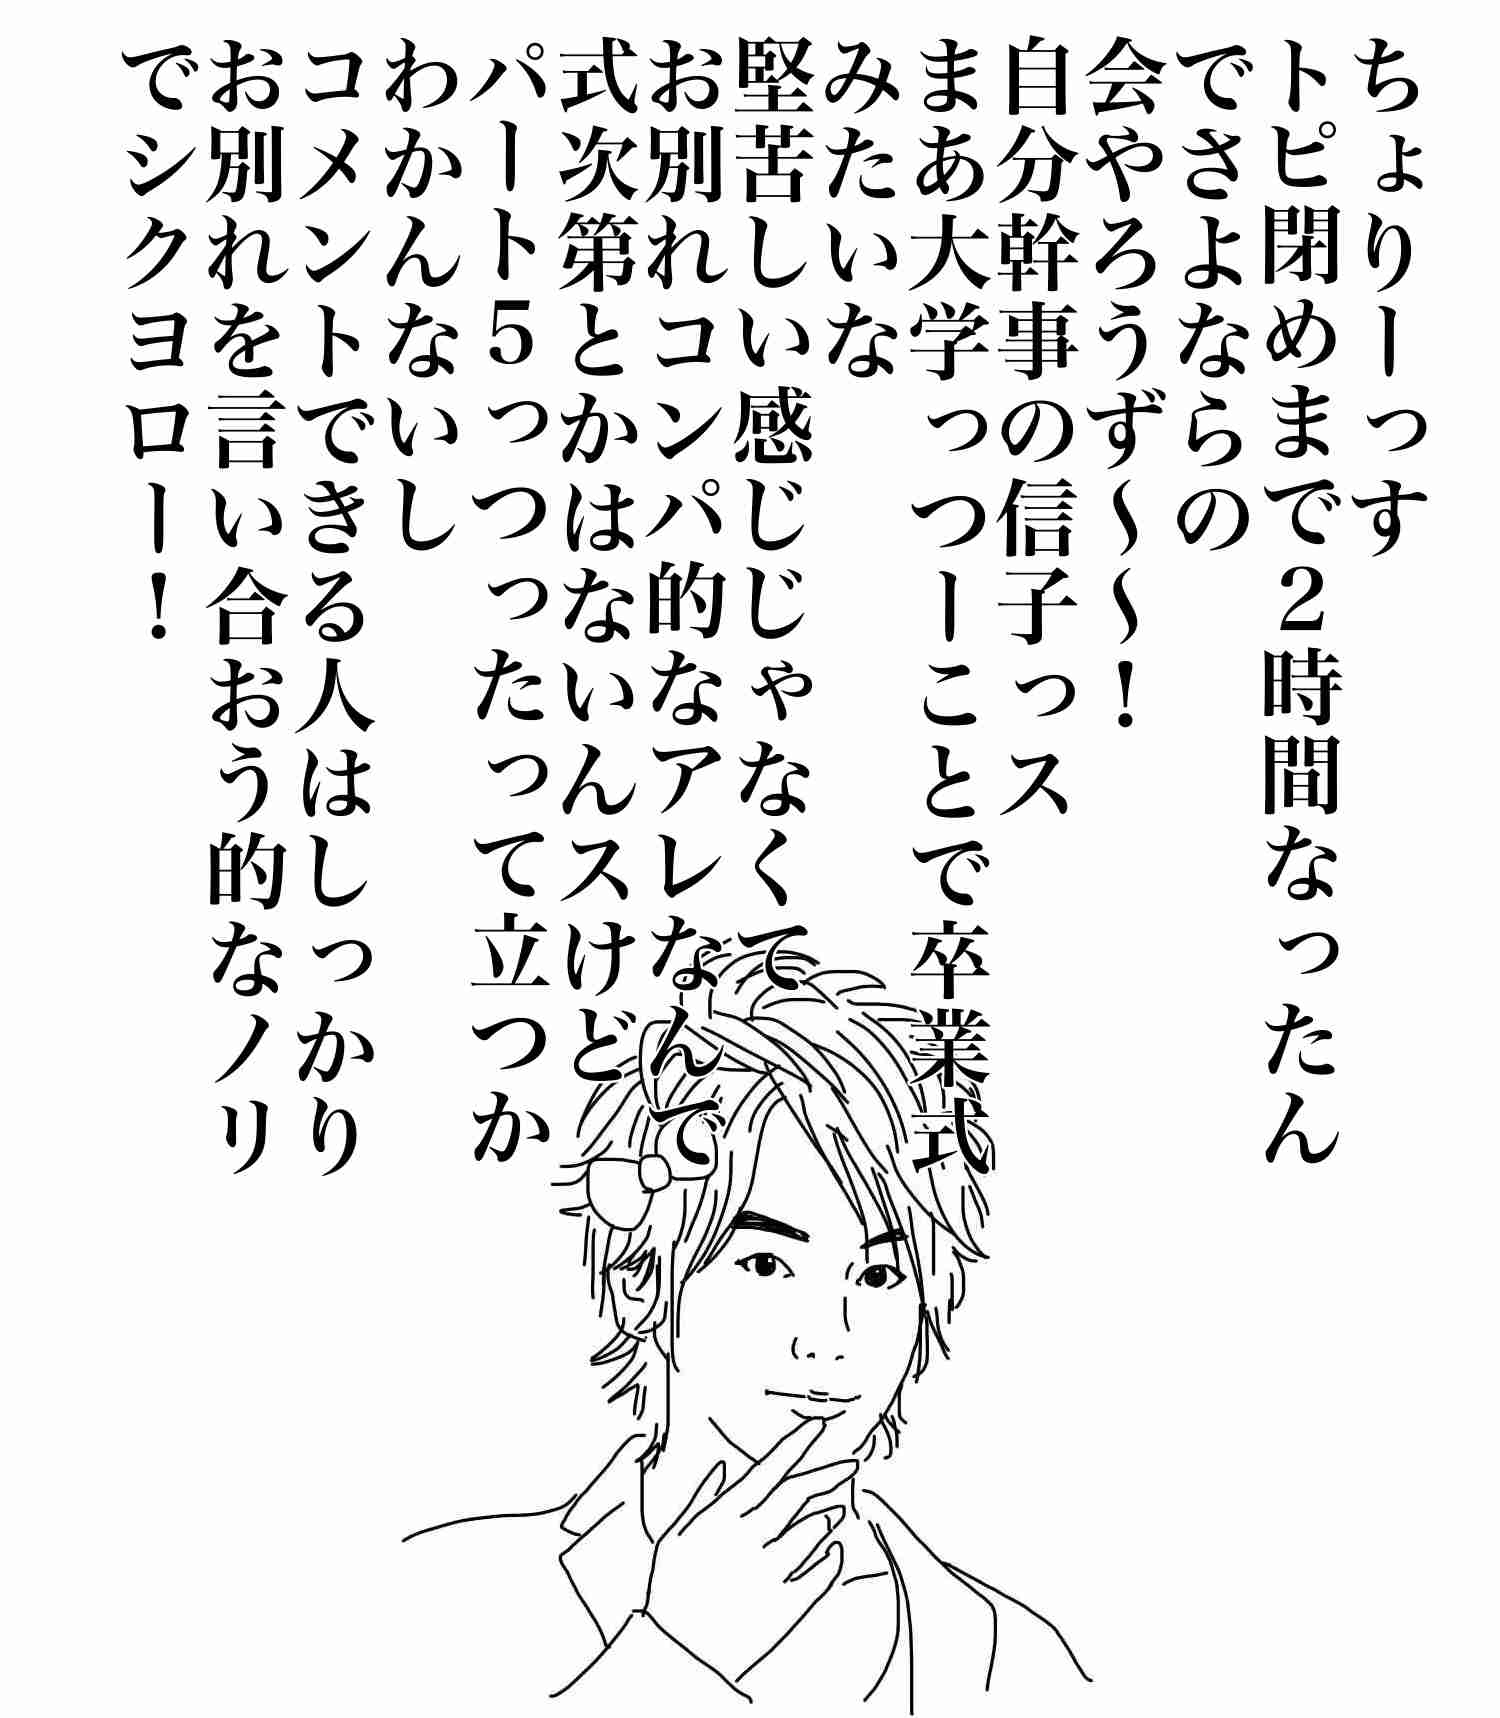 ちょりーっす
トピ閉めまで２時間なったん
でさよならの
会やろうず～～！
自分幹事の信子っス
まあ大学っつーことで卒業式
みたいな
堅苦しい感じじゃなくて
お別れコンパ的なアレなんで
式次第とかはないんスけど
パート５っつったって立つか
わかんないし
コメントできる人はしっかり
お別れを言い合おう的なノリ
でシクヨロー！